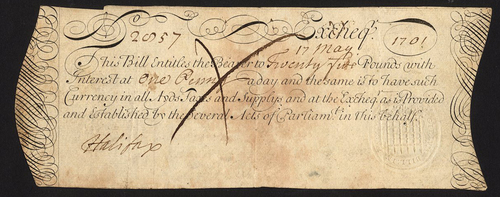 N.º 2857 Excheqr. 17 May 1701
This Bill Entitles the Bearer to Twenty five Pounds with
Interest at One Penny a day and the same is to have such
Currency in all Ayds Taxes and Supplys and at the Excheqr. as is Provided
and Established by the Several Acts of Parliamt. in this behalf.
Halifax